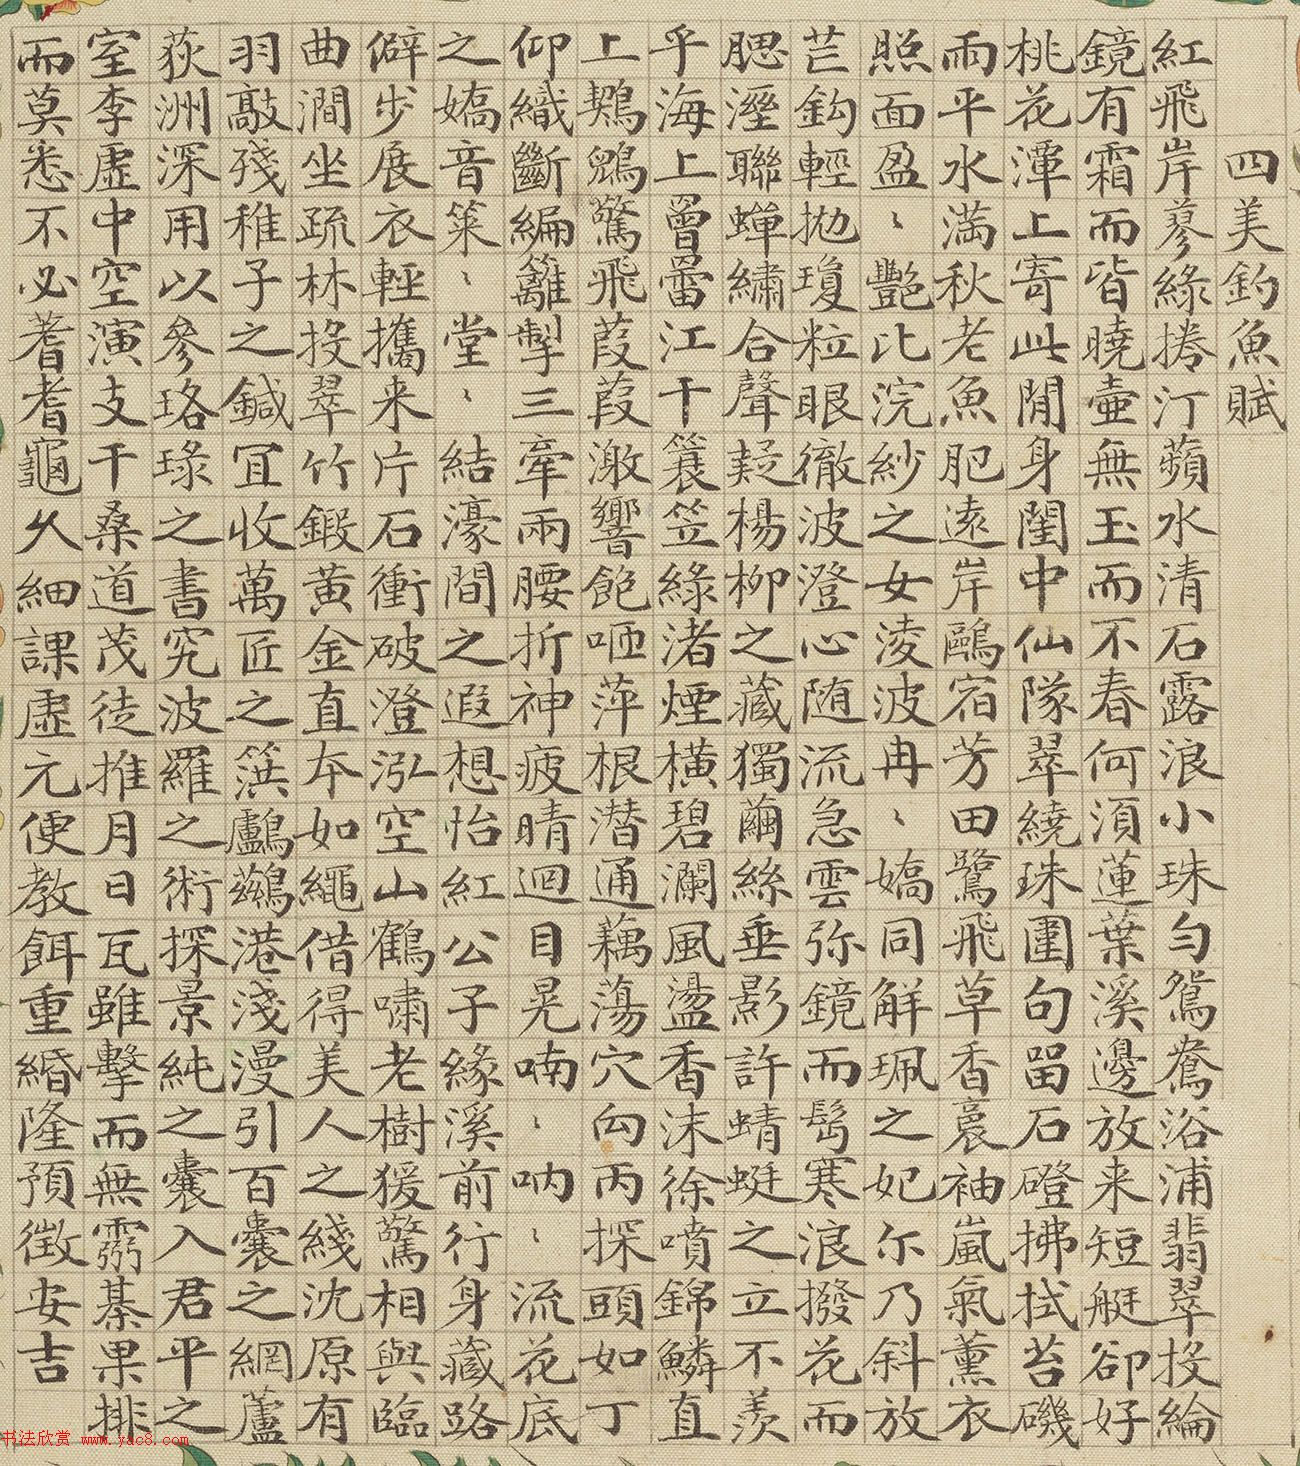 四美釣魚賦
紅飛岸蓼綠捲汀蘋水清石露浪小珠勻鴛鴦浴浦翡翠投綸
鏡有霜而皆曉壷無玉而不春何須蓮葉溪邊放来短艇卻好
桃花潭上寄此閒身閨中仙隊翠繞珠圍句留石磴拂拭苔磯
雨平水満秋老魚肥遠岸鷗宿芳田鷺飛草香裛袖嵐氣薰衣
照面盈〻艷比浣紗之女淩波冉〻嬌同解珮之妃尔乃斜放
芒鈎輕拋瓊粒眼徹波澄心随流急雲弥鏡而髩寒浪撥花而
腮溼聯蟬繡合聲疑楊柳之藏獨繭絲垂影許蜻蜓之立不羨
乎海上罾罶江干簑笠綠渚煙橫碧瀾風盪香沫徐噴錦鱗直
上鷄鶵驚飛葭葭激響飽咂萍根潜通藕蕩穴向丙探頭如丁
仰織斷編籬掣三牽兩腰折神疲晴迴目晃喃〻吶〻流花底
之嬌音䇲〻堂〻結濠間之遐想怡紅公子緣溪前行身藏路
僻步展衣輕攜来片石衝破澄泓空山鶴嘯老樹猨驚相與臨
曲澗坐疏林投翠竹鍛黃金直夲如繩借得美人之綫沈原有
羽敲殘稚子之鍼冝收萬匠之篊鸕鶿港淺漫引百囊之網蘆
荻洲深用以參珞琭之書究波羅之術探景純之囊入君平之
室李虛中空演支干桑道茂徒推月日瓦雖擊而無霛棊果排
而莫悉不必蓍耆龜久細課虛元便教餌重緡隆預徵安吉
书法欣赏 www.yac8.com